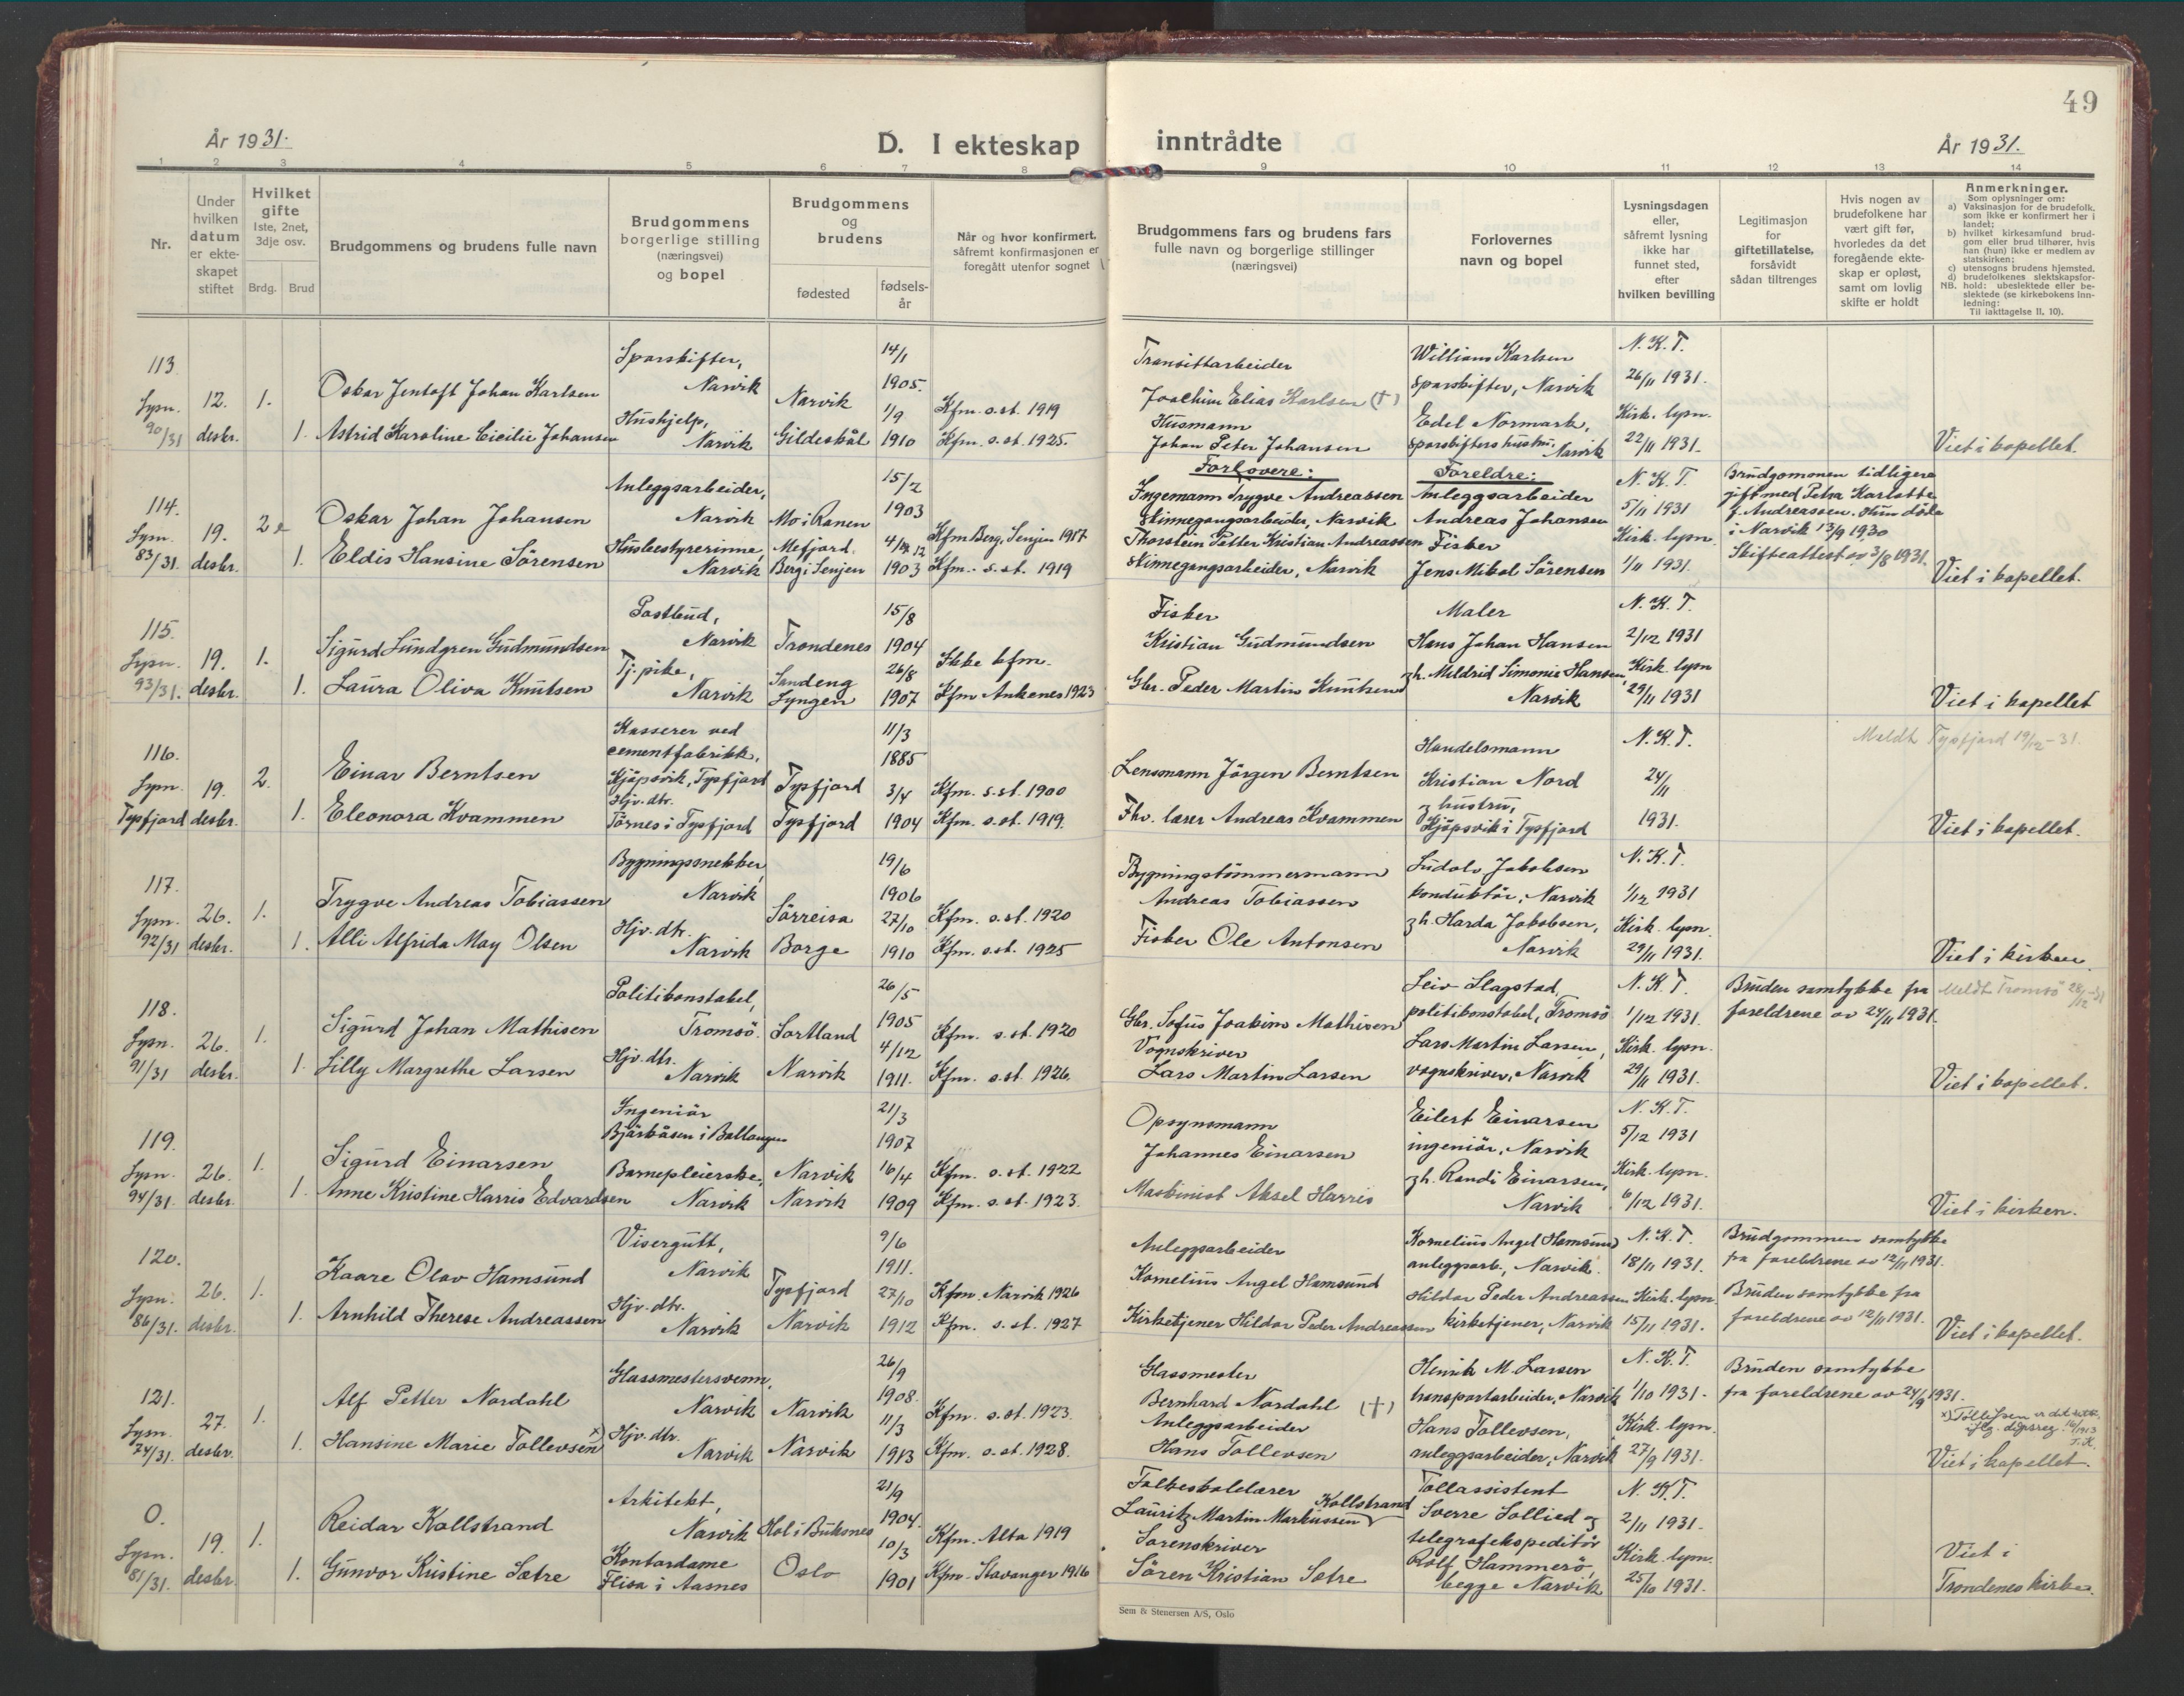 49
År 1931.
D. I ekteskap inntrådte
År 1931.
1 2 3 4 5 6 7 8 9 10 11 12 13 14
Nr.
Under hvilken datum er ekte-skapet stiftet
Hvilket gifte
1ste, 2net, 3dje osv.
Brdg. Brud
Brudgommens og brudens fulle navn
Brudgommens borgerlige stilling (næringsvei) og bopel
Brudgommens og brudens
fødested
fødsels-år
Når og hvor konfirmert.
såfremt konfirmasjonen er
foregått utenfor sognet
Brudgommens fars og brudens fars
fulle navn og borgerlige stillinger
(næringsvei)
Forlovernes
navn og bopel
Lysningsdagen
eller,
såfremt lysning
ikke har
funnet sted,
efter
hvilken bevilling
Legitimasjon
for
giftetillatelse,
forsåvidt
sådan tiltrenges
Hvis nogen av
brudefolkene har
vært gift før,
hvorledes da det
foregående ekte-
skap er opløst,
samt om lovlig
skifte er holdt
Anmerkninger.
Som oplysninger om:
a) Vaksinasjon for de brudefolk,
som ikke er konfirmert her i
landet;
b) hvilket kirkesamfund brud-
gom eller brud tilhører, hvis
han (hun) ikke er medlem av
statskirken;
c) utensogns brudens hjemsted.
d) brudefolkenes slektskapsfor-
NB. hold: ubeslektede eller be-
slektede (se kirkebokens inn-
ledning:
Til iakttagelse II, 10).
113. Lysn. 90/31
12. desbr.
1.
Oskar Jentoft Johan Karlsen
Sporskifter, Narvik
Narvik
14/1 1905.
Kfm. s. st. 1919
1. Astrid Karoline Cicilie Johansen
Hushjelp, Narvik
Gildeskål
1/9 1910
Kfm. s. st. 1925.
Transittarbeider
Joachim Elias Karlsen (†)
Husmann
Johan Peter Johansen
William Karlsen
sporskifter, Narvik
Edel Normark,
sporskifters hustru, Narvik
N. K. T.
26/11 1931.
Kirk. lysn.
22/11 1931.
Viet i kapellet.
114. Lysn. 83/31.
19. desbr.
2 e
Oskar Johan Johansen
Anleggsarbeider, Narvik
Mo i Ranen
15/2 1903
Kfm Berg, Senjen 1917
1. Eldis Hansine Sörensen
Husbestyrerinne, Narvik
Mefjord, Berg i Senjen
1903
Kfm. s. st. 1919
Forlovere:
Ingemann Trygve Andreassen
skinnegangsarbeider, Narvik
Thorstein Petter Kristian Andreassen
skinnegangsarbeider, Narvik
Foreldre:
Anleggsarbeider
Andreas Johansen
Fisker
Jens Mikal Sörensen
N. K. T.
5/11 1931
Kirk. lysn.
1/11 1931.
Brudgommen tidligere
gift med Petra Karlotte
f. Andreassen. Hun döde
i Narvik 13/9 1930
Skifteattest av 3/8 1931.
Viet i kapellet.
115. Lysn. 93/31.
19. desbr.
1.
Sigurd Lundgren Gudmundsen
Postbud, Narvik
Trondenes
15/8 1904
Ikke kfm.
1. Laura Oliva Knutsen
Tj. pike, Narvik
Sandeng Lyngen
26/8 1907
Kfm Ankenes 1923
Fisker
Kristian Gudmundsen
Gbr. Peder Martin Knutsen
Maler
Hans Johan Hansen
og h. Meldrid Simonie Hansen,
Narvik
N. K. T.
2/12 1931
Kirk. lysn
29/11 1931
Viet i kapellet
116. Lysn. Tysfjord
19. desbr.
2.
Einar Berntsen
Kasserer ved
cementfabrikk,
Kjöpsvik, Tysfjord
Tysfjord
11/3 1885
Kfm. s. st. 1900
1. Eleonora Kvammen
Hjv. dtr.
Törnes i Tysfjord
Tysfjord
3/4 1904
Kfm. s. st. 1919.
Lensmann Jörgen Berntsen
Fhv. lærer Andreas Kvammen
Handelsmann
Kristian Nord
og hustru,
Kjöpsvik i Tysfjord
N. K. T.
24/11
1931.
Meldt Tysfjord 19/12-31.
Viet i kapellet.
117. Lysn. 92/31
26. desbr.
1.
Trygve Andreas Tobiassen
Bygningssnekker, Narvik
Sörreisa
19/6 1906
Kfm. s. st. 1920
1. Alli Alfrida May Olsen
Hjv. dtr. Narvik
Borge
27/10 1910
Kfm. s. st. 1925
Bygningstömmermann
Andreas Tobiassen
Fisker Ole Antonsen
Ludolv Jakobsen
konduktör, Narvik
og h. Harda Jakobsen,
Narvik
N. K. T.
1/12 1931
Kirk. lysn.
29/11 1931.
Viet i kirken
118. Lysn. 91/31
26. desbr.
1.
Sigurd Johan Mathisen
Politikonstabel, Tromsö.
Sortland
26/5 1905
Kfm. s. st. 1920
1. Lilly Margrethe Larsen
Hjv. dtr. Narvik
Narvik
4/12 1911.
Kfm. s. st. 1926.
Gbr. Sofus Joakim Mathisen
Vognskriver
Lars Martin Larsen
Leiv Slagstad,
politikonstabel, Tromsö
Lars Martin Larsen,
vognskriver, Narvik
N. K. T.
1/12 1931.
Kirk. lysn.
29/11 1931.
Bruden samtykke fra
foreldrene av 24/11 1931.
Meldt Tromsö 28/12-31
Viet i kapellet.
119. Lysn. 94/31.
26. desbr.
1.
Sigurd Einarsen
Ingeniör
Bjärkåsen i Ballangen
Narvik
21/3 1907
Kfm. s. st. 1922
1. Anne Kristine Harris Edvardsen
Barnepleierske, Narvik
Narvik
16/4 1909
Kfm. s. st. 1923.
Opsynsmann
Johannes Einarsen
Maskinist Aksel Harris
Eilert Einarsen
ingeniör, Narvik
og h. Randi Einarsen,
Narvik
N. K. T.
5/12 1931
Kirk. lysn.
6/12 1931.
Viet i kirken.
120. Lysn. 86/31.
26. desbr.
1.
Kaare Olav Hamsund
Visergutt, Narvik
Tysfjord
9/6 1911.
Kfm. Narvik 1926
1. Arnhild Therese Andreassen
Hjv. dtr. Narvik
Narvik
27/10 1912
Kfm. s. st. 1927
Anleggsarbeider
Kornelius Angel Hamsund
Kirketjener Hildor Peder Andreassen
Kornelius Angel Hamsund
anleggsarb., Narvik.
Hildor Peder Andreassen
kirketjener, Narvik
N. K. T.
18/11 1931.
Kirk. lysn.
15/11 1931.
Brudgommen samtykke
fra foreldrene av 12/11 1931.
Bruden samtykke fra
foreldrene av 12/11 1931.
Viet i kapellet.
121. Lysn. 74/31.
27. desbr.
1.
Alf Petter Nordahl
Glassmestersvenn, Narvik
Narvik
26/9 1908.
Kfm. s. st. 1923.
1. Hansine Marie Tollevsen x)
Hjv. dtr. Narvik
Narvik
11/3 1913
Kfm. s. st. 1928.
Glassmester
Bernhard Nordahl (†)
Anleggsarbeider
Hans Tollevsen
Henrik M. Larsen
transportarbeider, Narvik
Hans Tollevsen,
anleggsarbeider, Narvik
N. K. T.
1/10 1931.
Kirk. lysn.
27/9 1931.
Bruden samtykke
fra foreldrene av 24/9 1931.
x) Tollefsen er det rette
iflg. dåpsreg. 16/1913
T. K.
Viet i kapellet.
0. Lysn. 81/31.
19. desbr.
1.
Reidar Kollstrand
Arkitekt, Narvik
Hol i Buksnes
21/9 1904.
Kfm. Alta 1919
1. Gunvor Kristine Sætre
Kontordame
Flisa i Aasnes
Oslo
10/3 1901
Kfm. Stavanger 1916
Folkeskolelærer
Lauritz Martin Markussen Kollstrand
Sorenskriver
Sören Kristian Sætre
Tollassistent
Sverre Sollied og
telegrafekspeditör
Rolf Hammerö,
begge Narvik
N. K. T.
2/11 1931.
Kirk. lysn.
25/10 1931.
Viet i
Trondenes kirke.
Sem & Stenersen A/S, Oslo